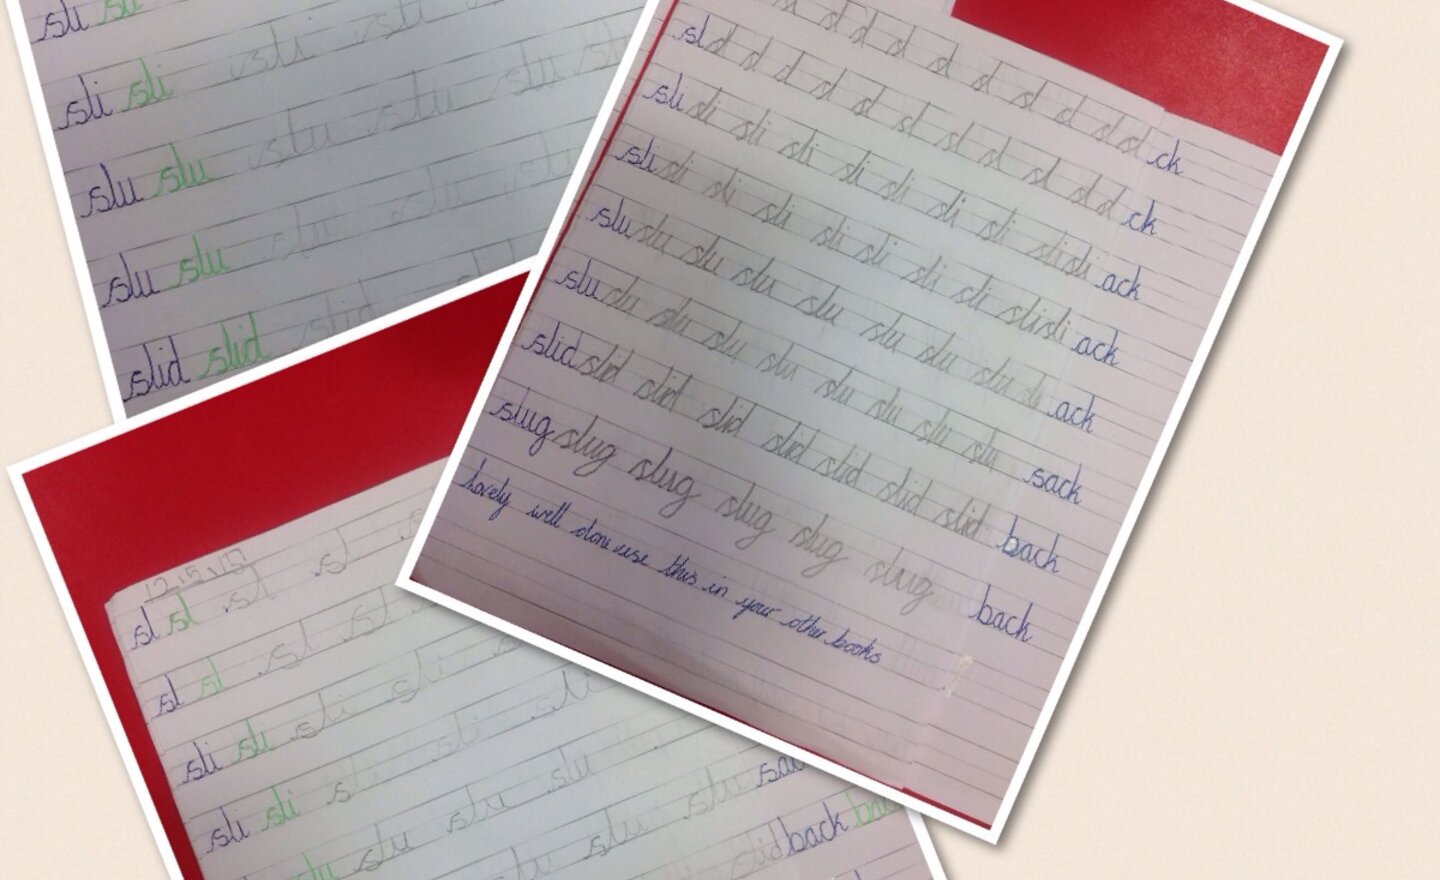 sli sli sli sli
sli sli sli sli slu sli
slu slu slu slu slu
slu slu slu slu slu
slid slid slid sl
sl sl sl sl sl sl sl sl sl ck
sl sl sl sl sl sl sl sl sl sl sl sl ck
sli sli sli sli sli sli sli sli sli sli ack
sli sli sli sli sli sli sli sli sli sli ack
slu slu slu slu slu slu slu slu sli ack
slu slu slu slu slu slu slu slu slu sack
slid slid slid slid slid slid slid slid back
slug slug slug slug slug slug back
Lovely well done use this in your other books
12.5.15
sl sl sl sl s
sl sl sl sl
sli sli sli sli s
sli sli s sli sli
slu slu slu slu sac
slu slu slu
slid back back